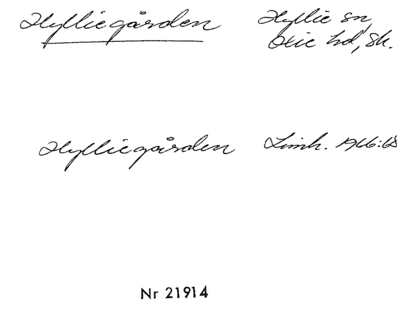 Hylliegården Hyllie sn,
Oxie hd, Sk.
Hylliegården Limh. 1966:68
Nr 21914